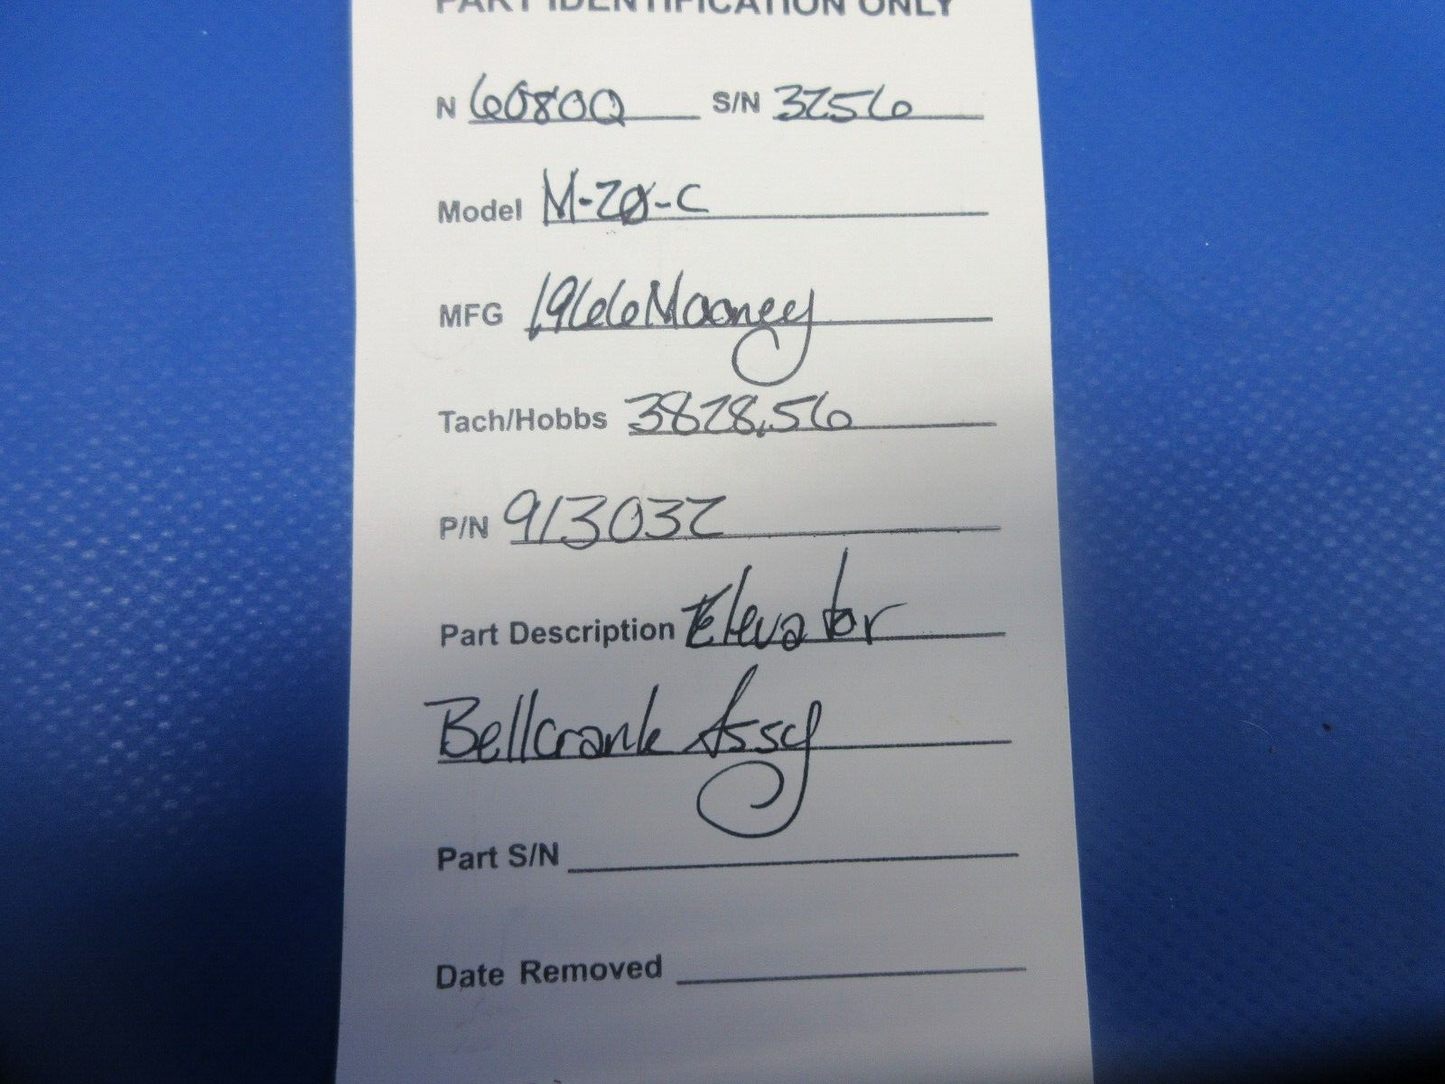 PART IDENTIFICATION ONLY
N 6080Q S/N 3256
Model M-20-C
MFG 1966 Mooney
Tach/Hobbs 3828.56
P/N 913032
Part Description Elevator
Bellcrank Assy
Part S/N
Date Removed